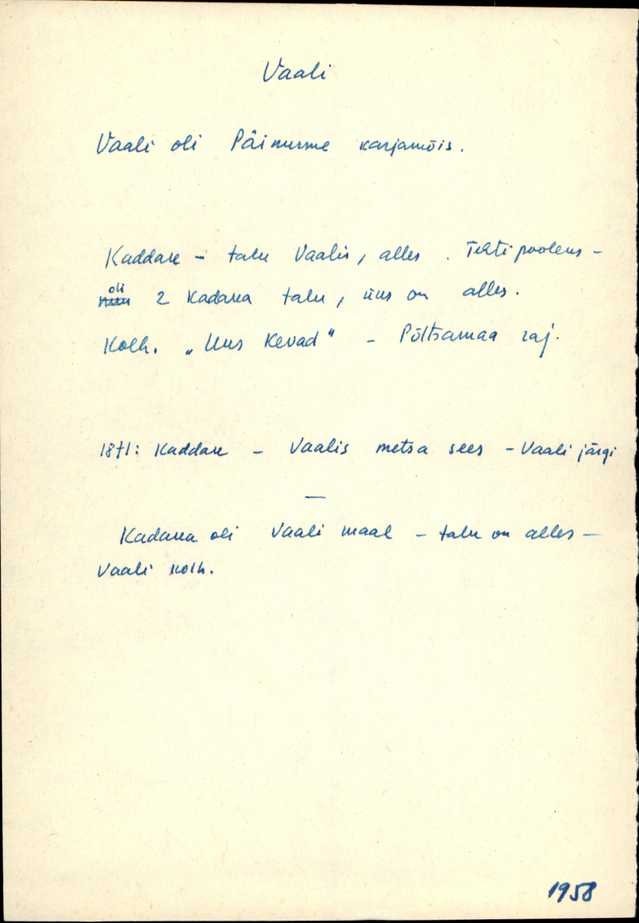 Vaali
Vaali oli Päinurme karjamõis.
Kaddaku – talu Vaalis, alles. Tehti pooleks –
oli 2 Kadaka talu, üks on alles.
Kolh. „Uus Kevad" – Põltsamaa raj.
1871: Kaddaku – Vaalis metsa sees – Vaali järgi
—
Kadaka oli Vaali maal – talu on alles –
Vaali kolh.
1958